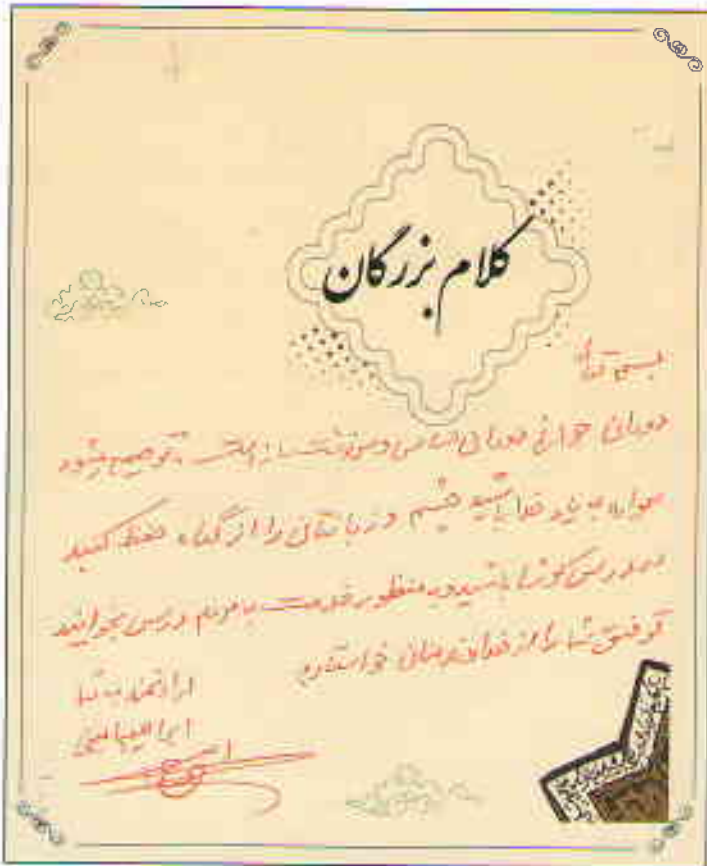 کلام بزرگان
بسمه تعالی
دوران جوانی دوران حساس و سرنوشت ساز است توصیه میشود
همواره به یاد خدا باشید چشم و زبانتان را از گناه حفظ کنید
در درس کوشا باشید و به منظور خدمت به مردم درس بخوانید
توفیق شما را از خدای منان خواستارم
ارادتمند به شما
ابراهیم امینی